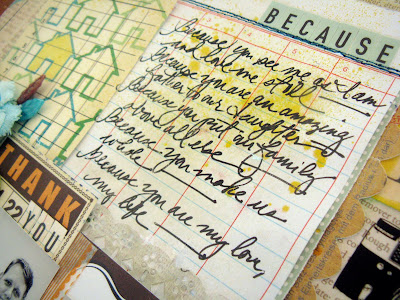 BECAUSE
because you see me as I am
and love me still
because you are an amazing
father to our daughter
because you put our family
above all else
because you make us
because you are my love,
my life
THANK
22 YOU